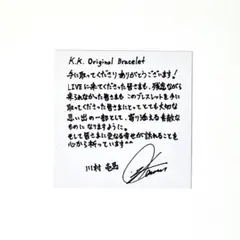 K.K. Original Bracelet
手に取ってくださりありがとうございます!
LIVEに来てくださった皆さまも、残念ながら
来られなかった皆さまもこのブレスレットを手に
取ってくださった皆さまにとってとても大切な
思い出の一部として、寄り添える素敵な
ものになりますように。
そして皆さまに更なる幸せが訪れることを
心から祈っています^^
川村